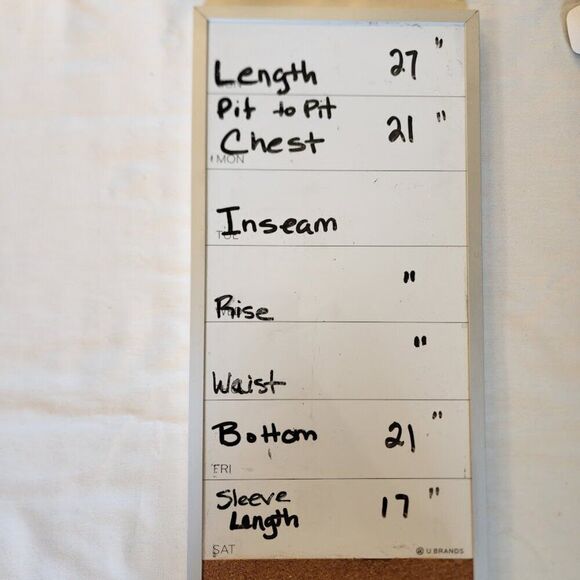 Length 27"
Pit to Pit
Chest 21"
MON
Inseam
Rise "
Waist "
Bottom 21"
FRI
Sleeve
Length 17"
SAT U BRANDS